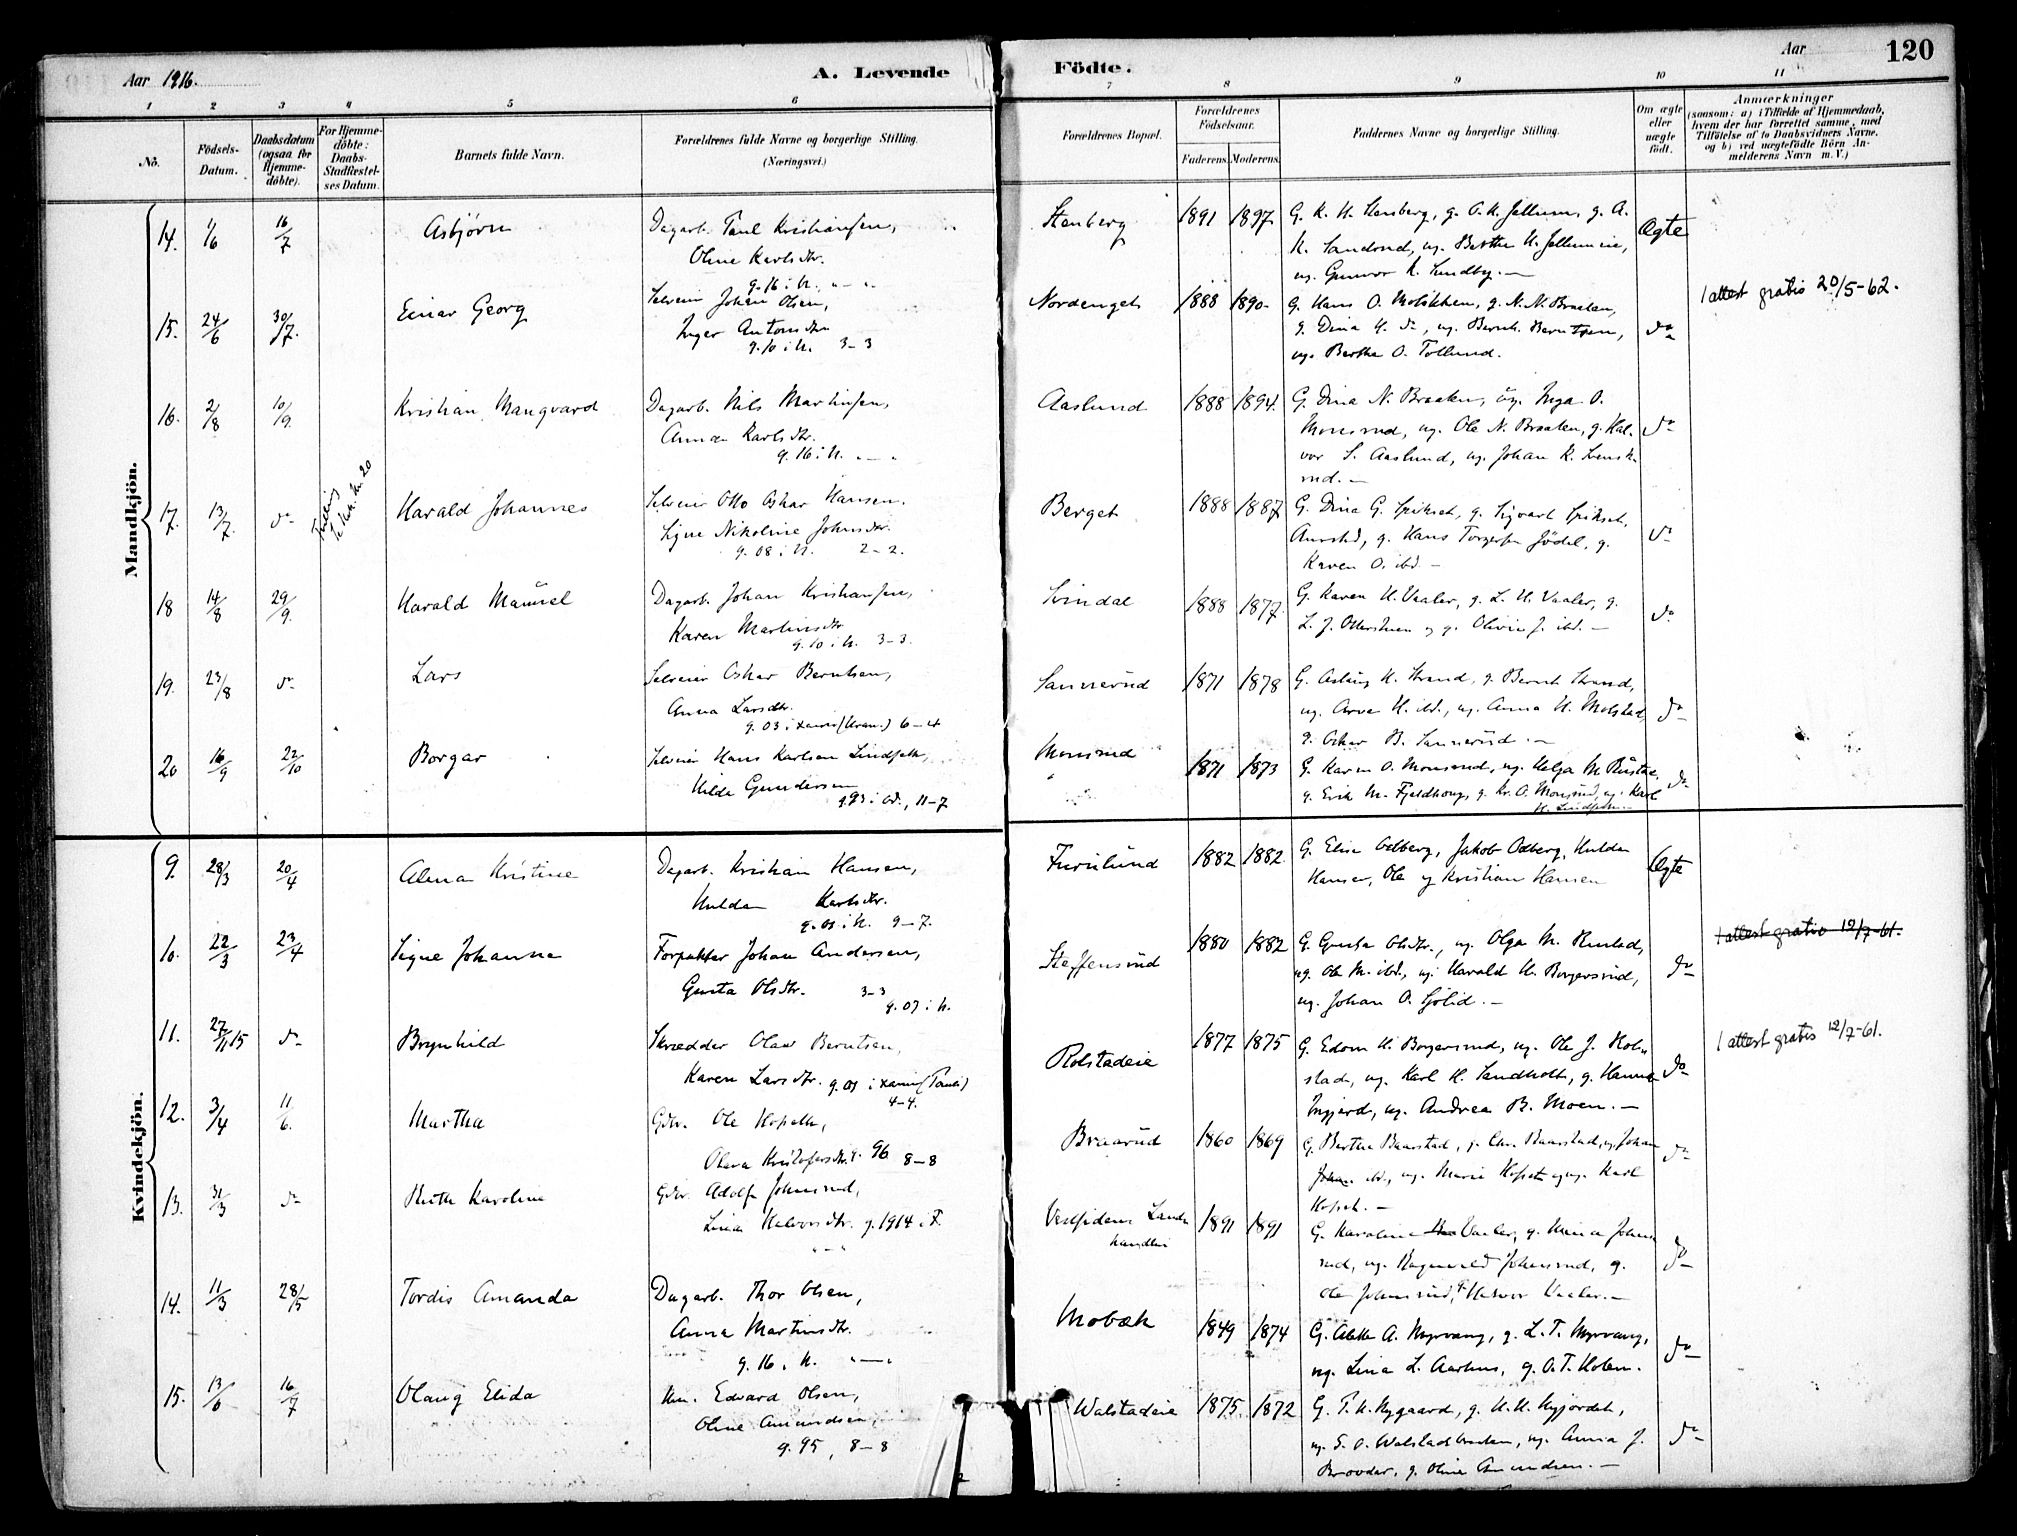 Aar 1916.
A. Levende
Födte.
Aar
120
1 2 3 4 5 6 7 8 9 10 11
No.
Födsels-Datum.
Daabsdatum (ogsaa for Hjemmedöbte).
For Hjemmedöbte: Daabs-Stadfæstelses Datum.
Barnets fulde Navn.
Forældrenes fulde Navne og borgerlige Stilling.
(Næringsvei.)
Forældrenes Bopæl.
Forældrenes Födselsaar.
Faderens. Moderens.
Faddernes Navne og borgerlige Stilling.
Om ægte eller uægte födt.
Anmærkninger
(saasom: a) i Tilfælde af Hjemmedaab,
hvem der har forrettet samme, med
Tilföielse af to Daabsvidners Navne,
og b) ved uægtefödte Börn An-
melderens Navn m. V.)
Mandkjön.
14. 1/6 16/7 Asbjørn Dagarb. Paul Kristiansen, Stenberg 1891 1897 G. K. H. Stenberg, g. O. K. Jellum, g. A. Ægte
Oline Karlsdtr. K. Sandrud, ug. Berthe H.
g. 16 i N. ug. Gunvor K. Sundby. —
15. 24/6 30/7. Einar Georg Selveier Johan Olsen, Nordenget 1888 1890 G. Hans O. g. N. N. Braaten, do 1 attest gratis 20/5-62.
Inger Antonsdtr g. Dina H. do, ug. Bernh. Berntsen,
g. 10 i N. 3-3 ug. Berthe O. Tollund.
16. 2/8 10/9. Kristian Mangvard Dagarb. Nils Martinsen, Aaslund 1888 1894. G. Dina N. Braaten, ug. Inga O. do
Anna Karlsdtr. Monsrud, ug. Ole N. Braaten, g. Hal-
g. 16 i N. vor S. Aaslund, ug. Johan K. Svens-
rud. —
17. 13/7. do Harald Johannes Selveier Otto Oskar Hansen. Berget 1888 1887 G. Dina G. g. Sigvart do
Signe Nikoline Johnsdtr. g. Hans Torgersen Jödal, g.
g. 08 i N. 2-2. Karen O. ibd. —
18 14/8 29/9. Harald Manuel Dagarb. Johan Kristiansen, Svindal 1888 1877. G. Karen H. Vaaler, g. L. H. Vaaler, g. do
Karen Martinsdtr L. J. og g. Olivie J. ibd. —
g. 10 i N. 3-3.
19. 23/8 do Lars Selveier Oskar Berntsen, Sannerud 1871 1878 G. Aslaug H. Strand, g. Bernt Strand, do
Anna Larsdtr. ug. Arve H. ibd., ug. Anna H. Molstad,
g. 03 i 6-4 g. Oskar B. Sannerud. —
20 16/9 22/10 Borgar Selveier Hans Karlsen Lindseth, Monsrud 1871 1873 G. Karen O. Monsrud, ug. Helga M. Rustad, do
Hilda Gundersen g. Erik M. Fjeldhoug, g. Kr. O. Monsrud, ug. Karl
g. 93 i Od., 11-7 H. Lindseth —
Kvindekjön.
9. 28/3 20/4 Alma Kristine Dagarb. Kristian Hansen, Furulund 1882 1882. G. Elise Odberg, Jakob Odberg, Hulda Ægte
Hulda Karlsdtr. Hansen, Ole og Kristian Hansen
g. 03 i N. 9-7.
10. 22/3 23/4 Signe Johanne Forpakter Johan Andersen, Steffensrud 1880 1882 G. Gusta Olsdtr., ug. Olga M. Rustad, do 1 attest gratis 12/7-61.
Gusta Olsdtr. 3-3 ug. Ole M. ibd., ug. Harald H. Borgersrud,
g. 07 i N. ug. Johan O. Sjölid. —
11. 27/11 15 do Brynhild Skrædder Olaw Berntsen, Rolstadeie 1877 1875 G. Edom H. Borgersrud, ug. Ole J. Rol- do 1 attest gratis 12/7-61.
Karen Larsdtr. g. 03 i stad, ug. Karl H. Sandholt, g. Hanna
4-4. Ingjerd, ug. Andrea B. Moen. —
12. 3/4 11/6. Martha Gdbr. Ole Hopseth, Braarud 1860 1869 G. Berthe Baarstad, g. Chr. Baarstad, ug. Johan do
Olava Kristofersdtr. g. 96 8-8 ibd., ug. Marie Hopseth og ug. Karl
Hopseth. —
13. 31/3 do Ruth Karoline Gdbr. Adolf Johnsrud, Vestsidens Landhandleri 1891 1891 G. Karoline Vaaler, g. Mina Johns- do
Lina Halvorsdtr. g. 1914 i F. rud, ug. Ragnvald Johnsrud, g.
Ole Johnsrud, g. Halvor Vaaler. —
14. 11/3 28/5 Tordis Amanda Dagarb. Thor Olsen, Mobæk 1849 1874 G. Alette A. Myrvang, g. L. T. Myrvang, do
Anna Martinsdtr. ug. Lina L. Aarhus, g. O. T. Holen.
g. 16 i N.
15. 13/6 16/7 Olaug Elida Edvard Olsen, Walstadeie 1875. 1872 G. P. H. Nygaard, g. H. H. Nyjordet, do
Oline Amundsen, ug. S. O. Walstadbraaten, ug. Anna J.
g. 95, 8-8 Brovder, g. Oline Amundsen. —